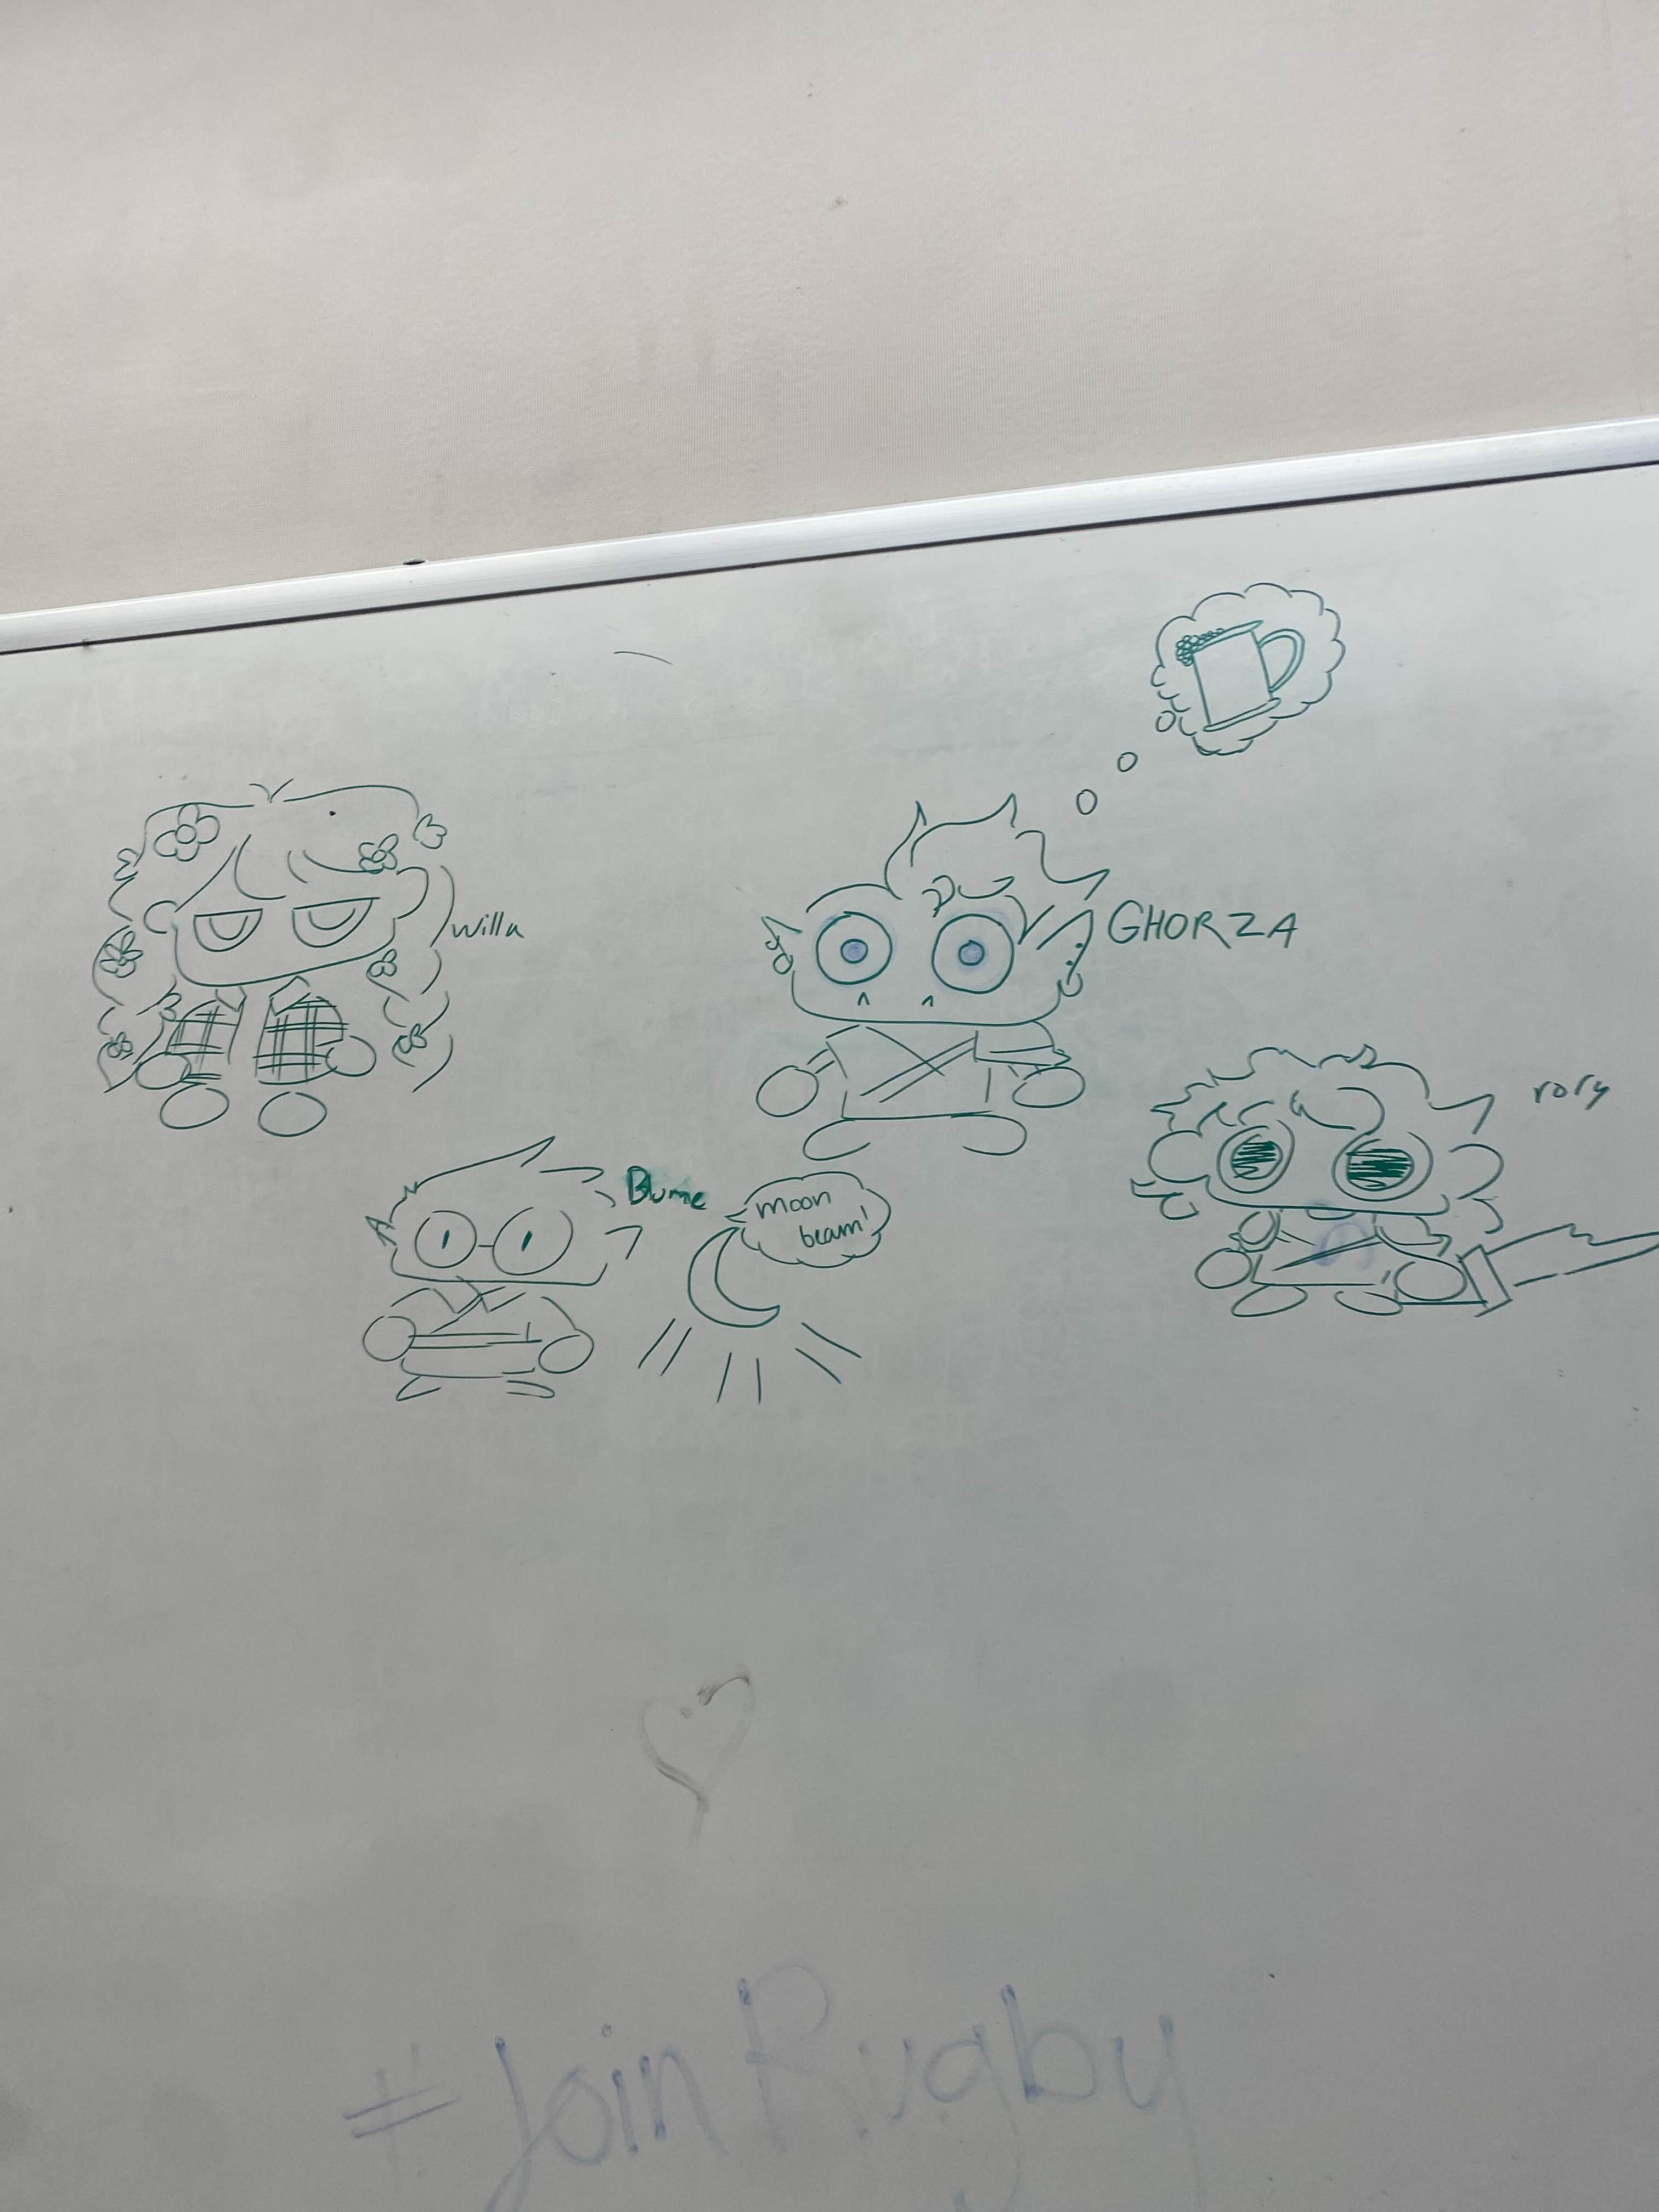 willa
GHORZA
rory
Blume
moon
beam!
#JoinRugby